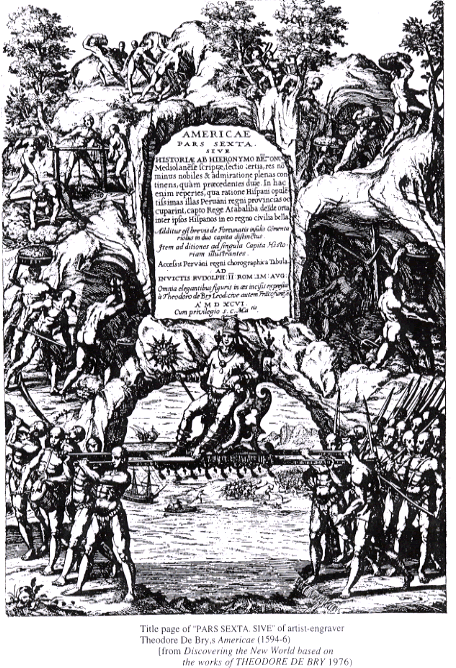 AMERICAE
PARS SEXTA.
SIVE
HISTORIÆ AB HIERONYMO
Mediolanẽse scriptæ, sectio tertia, res no
minus nobiles & admiratione plenas con
tinens, quàm præcedentes duæ. In hac
enim reperies, qua ratione Hispani opule
tissimas illas Peruäni regni provincias oc
cuparint, capto Rege Atabaliba; deĩde orta
inter ipsos Hispanos in eo regno civilia bella.
Additus est brevis de Fortunatis insulis Commenta
riolus in duo capita distinctus
Item ad ditiones ad singula Capita Histo-
riam illustrantes.
Accessit Peruäni regni chorographica Tabula.
AD
INVICTIS RUDOLPH II ROM. IM: AVG:
Omnia elegantibus figuris in æs incisis expressa
à Theodoro de Bry Leod. cive autem
Aº M D XCVI
Cum privilegio S. C. Ma.tis
Title page of "PARS SEXTA. SIVE" of artist-engraver
Theodore De Bry,s Americae (1594-6)
[from Discovering the New World based on
the works of THEODORE DE BRY 1976)